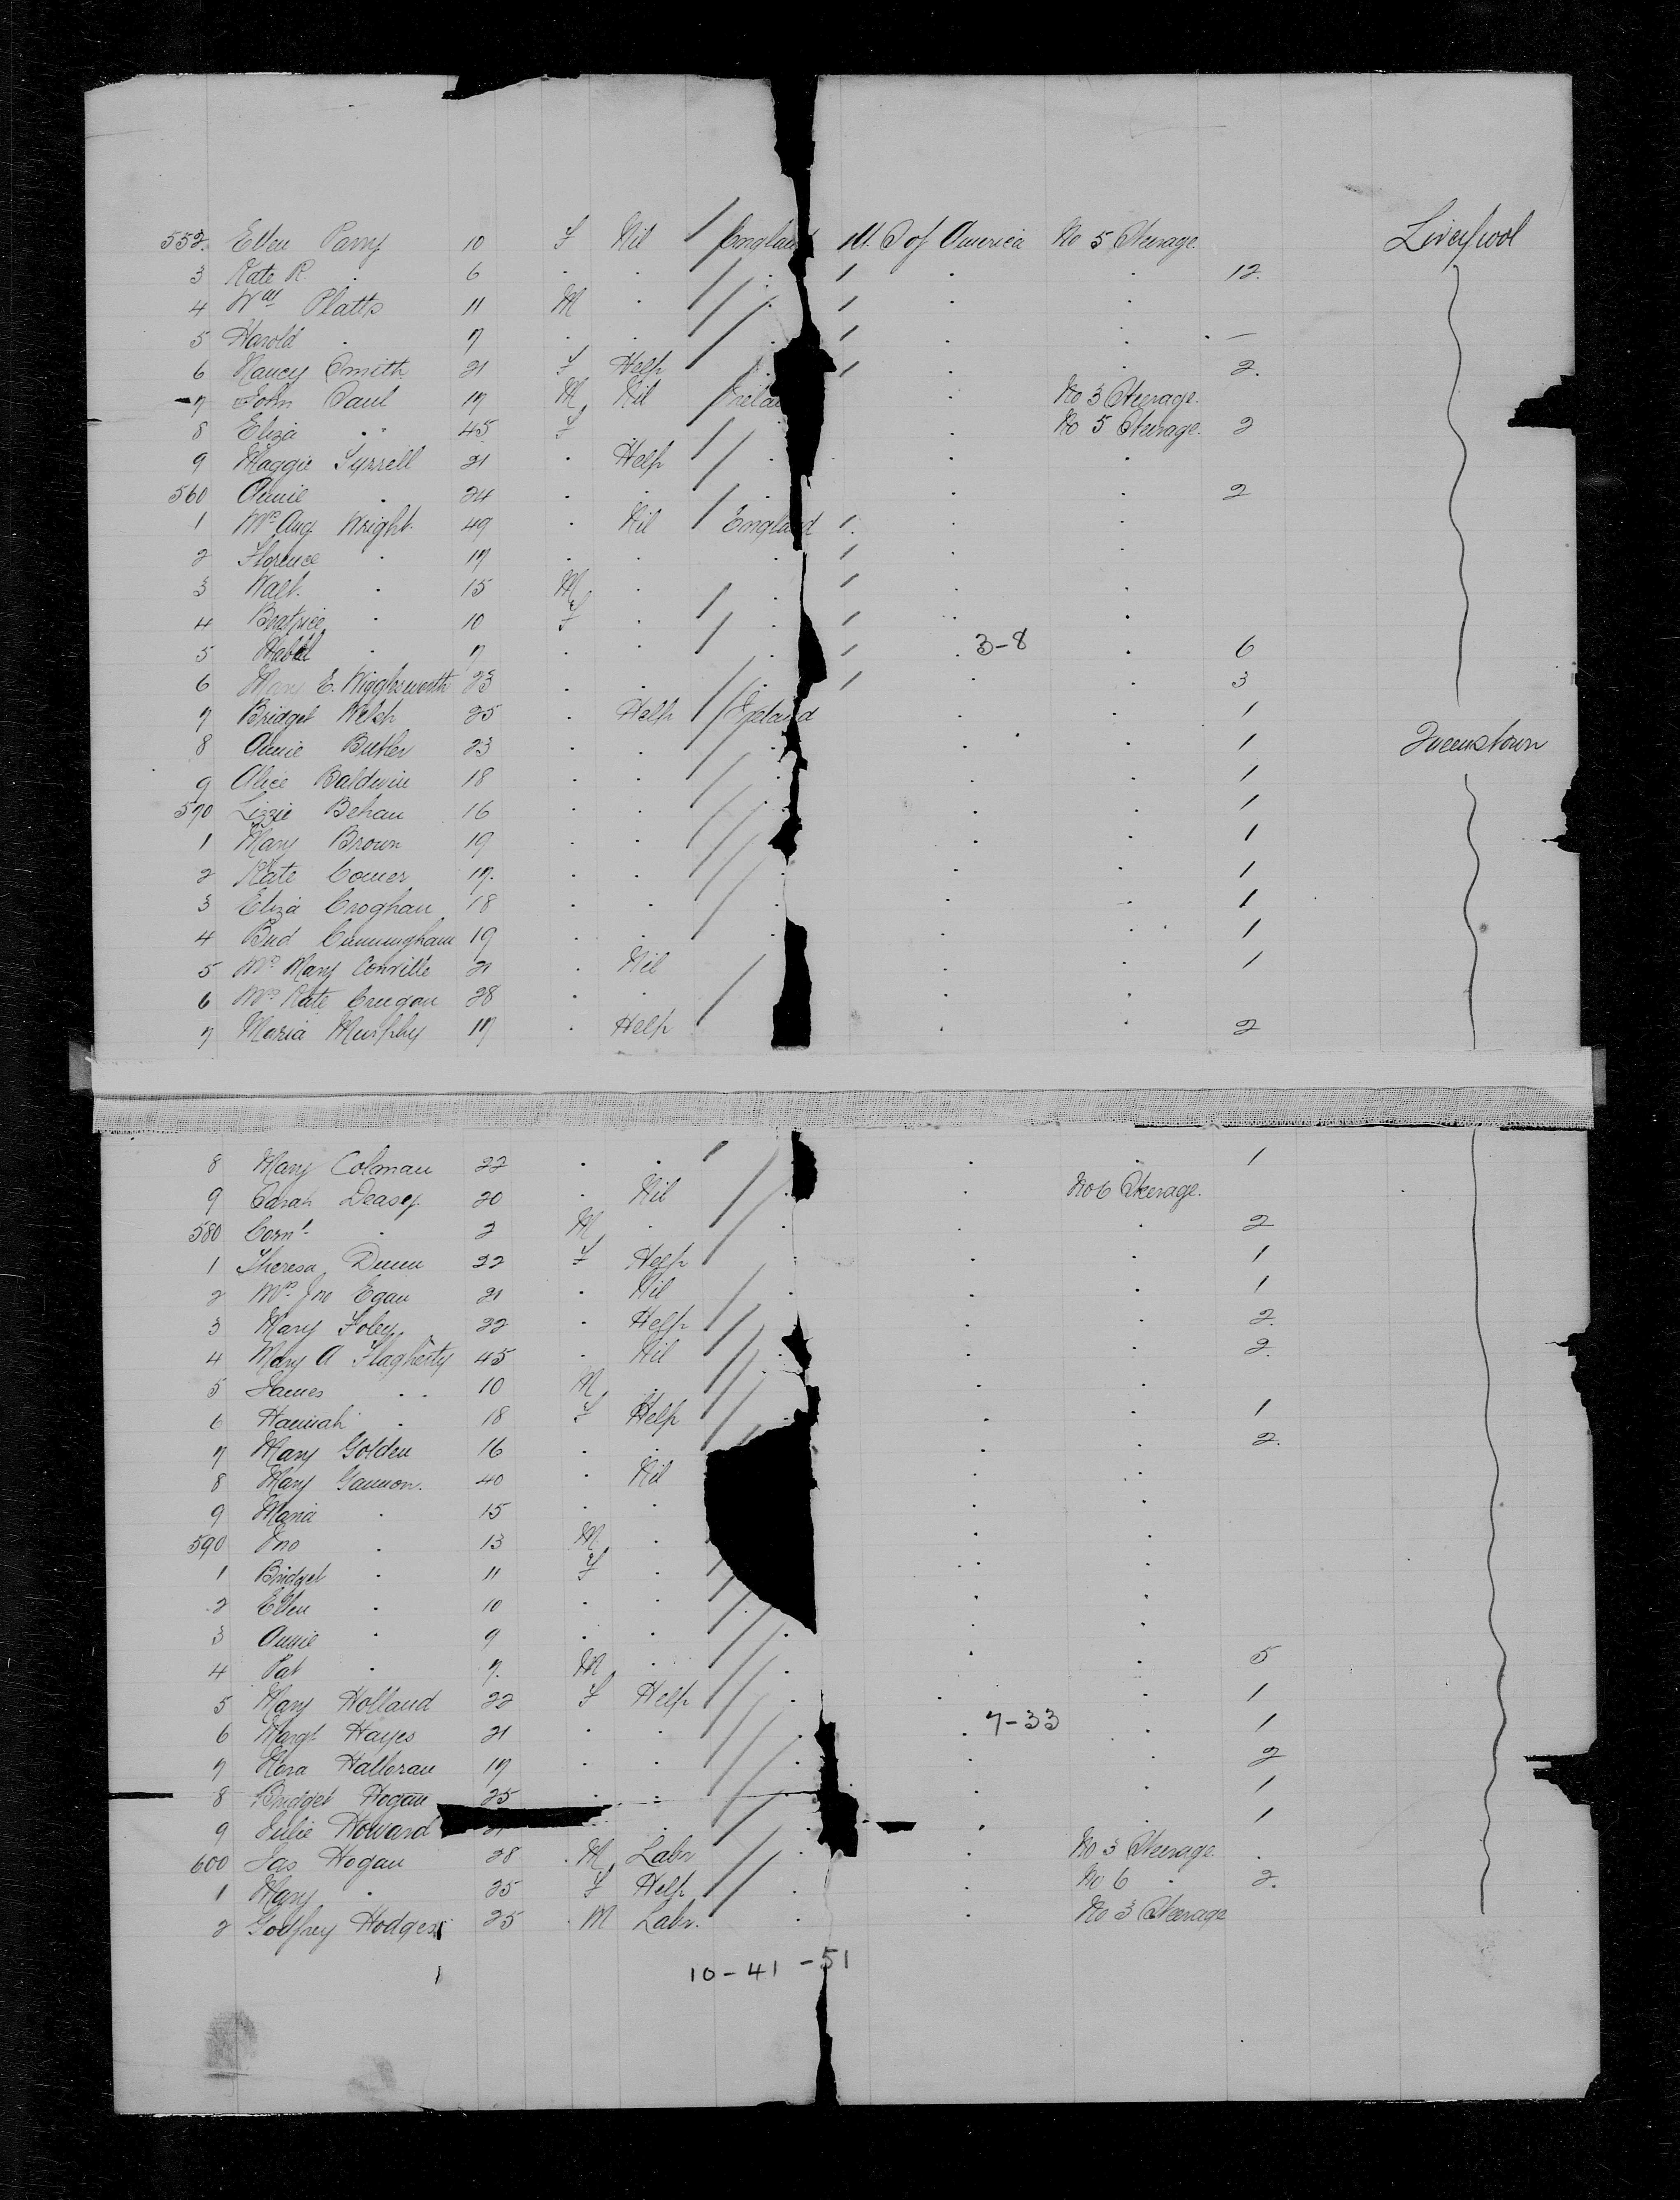 552. Ellen Parry 10 F Nil England U. S of America No 5 Steerage. Liverpool
3 Kate R. . 6 . . . . . 12.
4 Wm Platts 11 M . . . .
5 Harold . 7 . . . . . —
6 Nancy Smith 21 F Help . . . 2.
7 John Paul 17 M Nil Irela . No 3 Steerage.
8 Eliza " 45 F . . . No 5 Steerage. 2
9 Maggie Tyrrell 21 . Help . . .
560 Annie . 24 . . . . . 2
1 Mrs Aug Wright. 49 . Nil England . .
2 Florence . 17 . . . . .
3 Walt. . 15 M . . . .
4 Beatrice . 10 F . . . .
5 Mabel . 7 . . . . 3-8 . 6
6 Mary E. Wigglesworth 23 . . . . . 3
7 Bridget Welsh 25 . Help Ireland . . 1
8 Annie Butler 23 . . . . . 1 Queenstown
9 Alice Baldwin 18 . . . . . 1
570 Lizzie Behan 16 . . . . . 1
1 Mary Brown 19 . . . . . 1
2 Kate Comer 17. . . . . . 1
3 Eliza Croghan 18 . . . . . 1
4 Brid Cunningham 19 . . . . . 1
5 Mrs Mary Conville 21 . Nil . . 1
6 Mrs Kate Crugan 28 . . . .
7 Maria Murphy 17 . Help . . 2
8 Mary Colman 22 . . . . 1
9 Sarah Deasy 20 . Nil . . No 6 Steerage.
580 Corn! . 2 M . . . . 2
1 Theresa Dunn 22 F Help . . . 1
2 Mrs Jno Egan 21 . Nil . . . 1
3 Mary Foley 22 . Help . . 2.
4 Mary A Flagherty 45 . Nil . . 2.
5 James . . 10 M . . .
6 Hannah . 18 F Help . . . 1
7 Mary Golden 16 . . . . 2.
8 Mary Gannon. 40 . Nil . .
9 Maria . 15 . . . .
590 Jno . 13 M . . .
1 Bridget . 11 F . . .
2 Ellen . 10 . . . .
3 Annie . 9 . . . . .
4 Pat . 7. M . . . . 5
5 Mary Holland 22 F Help . . . 1
6 Margt Hayes 21 . . . . 7-33 . 1
7 Nora Halloran 17 . . . . . 2
8 Bridget Hogan 25 . . . . 1
9 Julie Howard 21 . . . . 1
600 Jas Hogan 28 M Labr . . No 3 Steerage .
1 Mary . 25 F Help . . No 6 . 2.
2 Godfrey Hodges 25 M Labr. . . No 3 Steerage
10-41-51